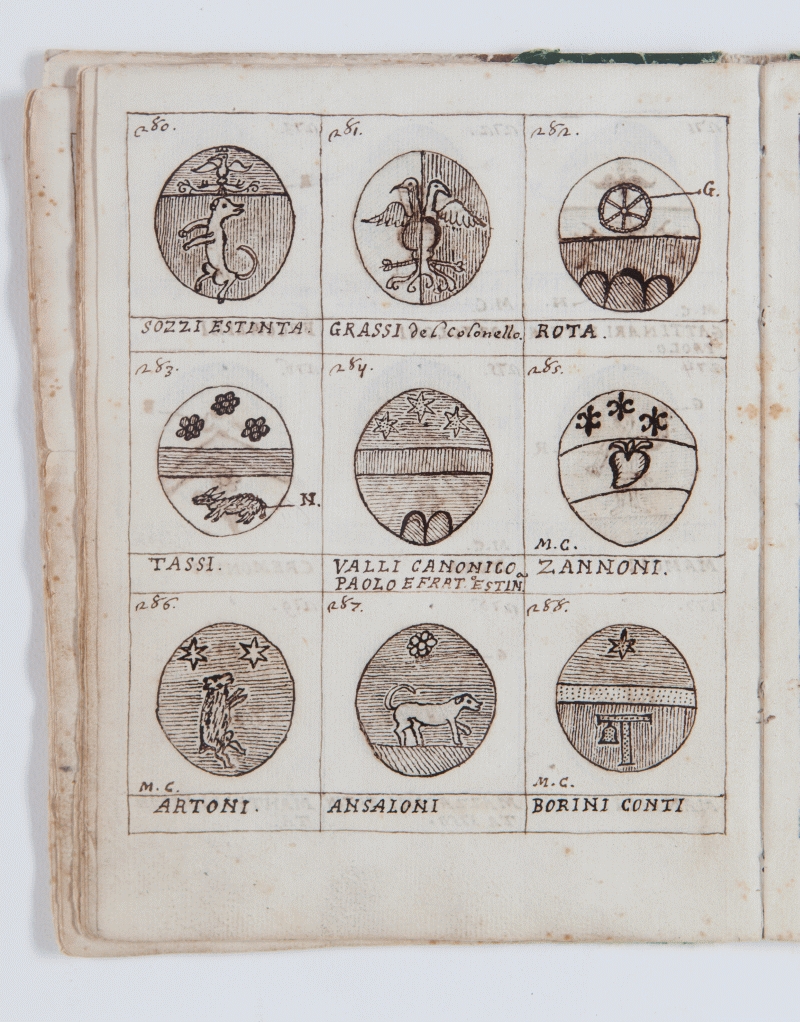 280.
281.
282.
G.
SOZZI ESTINTA.
GRASSI del Colonello.
ROTA.
283.
284.
285.
N.
M.C.
TASSI.
VALLI CANONICO
PAOLO E FRAT. ESTIN.
ZANNONI.
286.
287.
288.
M.C.
M.C.
ARTONI.
ANSALONI
BORINI CONTI